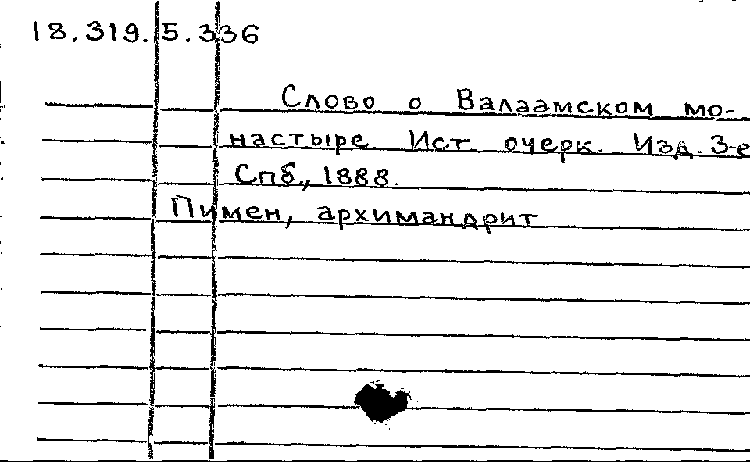 18.319.5.336
Слово о Валаамском мо-
настыре Ист. очерк. Изд. 3-е
Спб., 1888.
Пимен, архимандрит